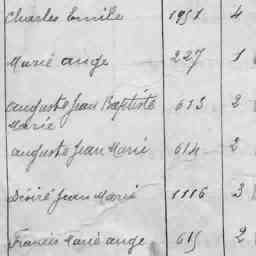 Charles Emile 1951 4
Marie ange 227 1
auguste Jean Baptiste 613 2
Marie
auguste Jean Marie 614 2
Désiré Jean Marie 1116 3
Francis Marie ange 615 2